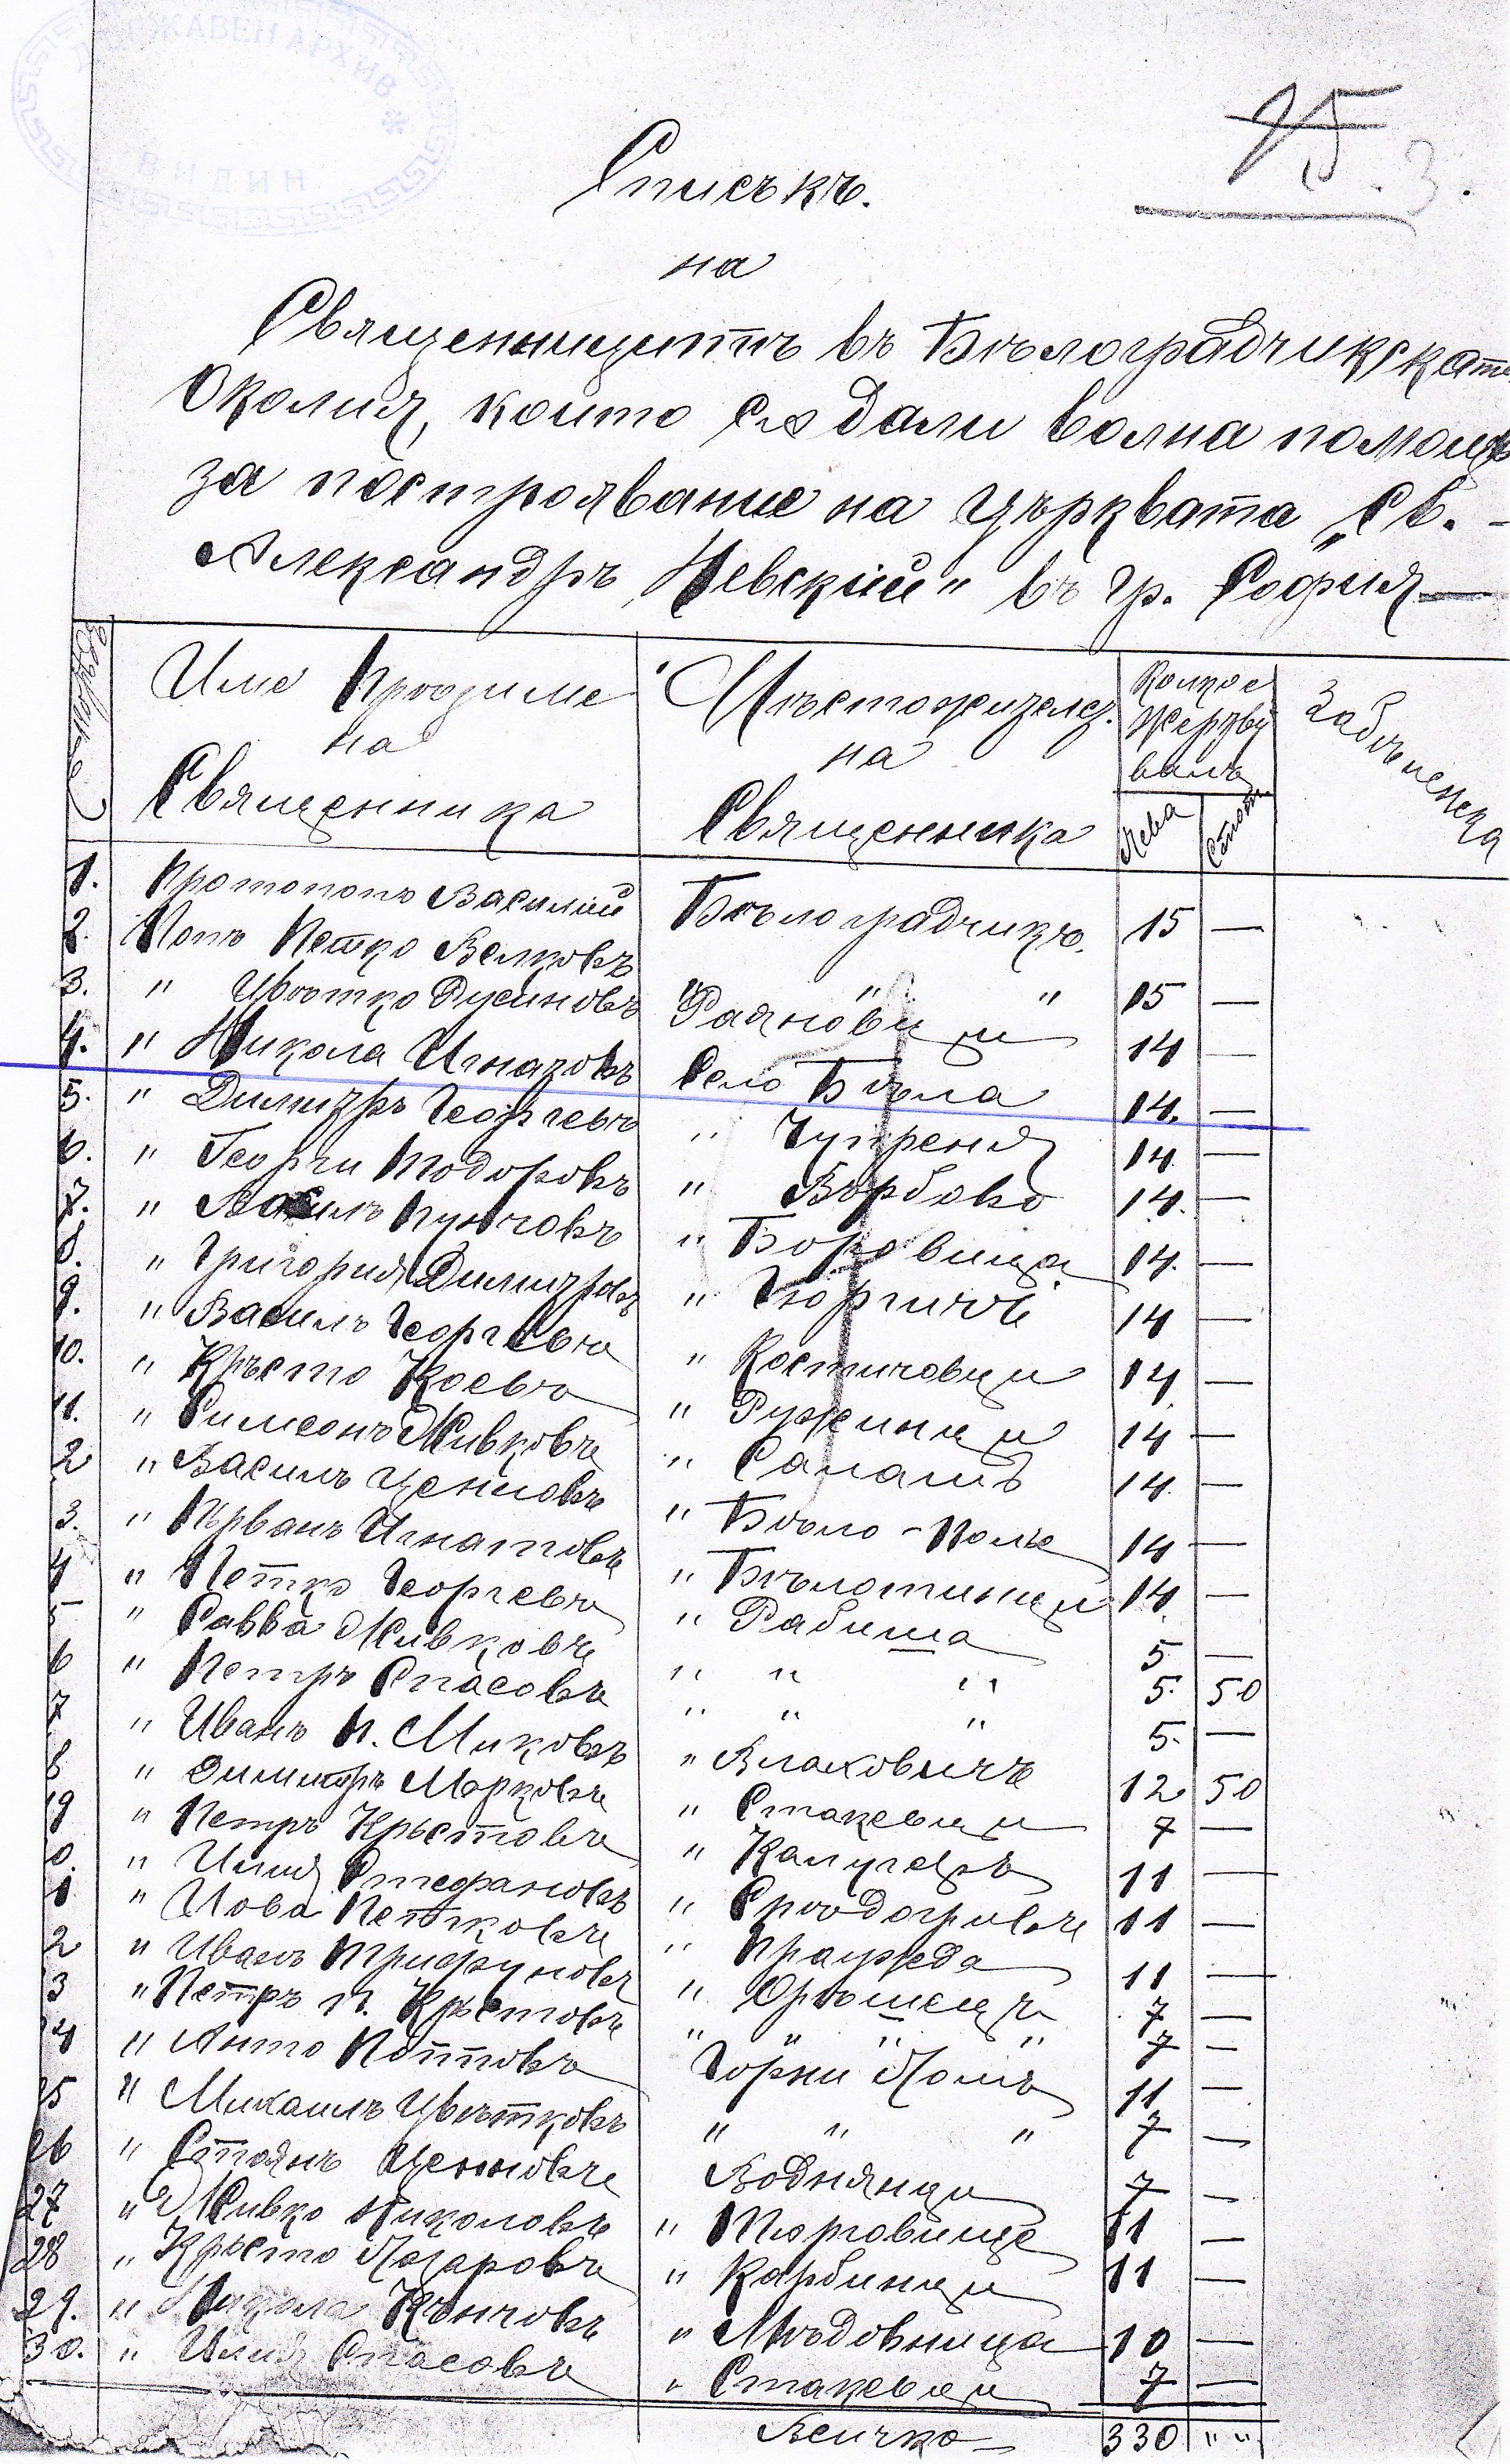 ДЪРЖАВЕН АРХИВ *
ВИДИН
15
3.
Списъкъ.
на
Священницитѣ въ Бѣлоградчикската
Околия, които сѫ дали волна помощь
за построявание на църквата „Св.
Александръ Невский" въ гр. София —
Име Презиме на Священника
Мѣстожителст. на Священника
Колко е жертвувалъ
Лева
Стот.
Забѣлежка
1. Протопопъ Василий Бѣлоградчикъ. 15 —
2. Попъ Петко Велковъ " " " 15 —
3. " Цвѣтко Русиновъ Раяновци 14 —
4. " Никола Игнатовъ Село Бѣла 14. —
5. " Димитръ Георгевъ " Чупреня 14 —
6. " Георги Тодоровъ " Върбово 14. —
7. " Василъ Пунчовъ " Боровица 14. —
8. " Григория Димитровъ " Гюргичъ 14 —
9. " Василъ Георгевъ " Костичовци 14 —
10. " Кръсто Коевъ " Ружинци 14 —
11. " Симеонъ Живковъ " Салашъ 14 —
2 " Василъ Ценковъ " Бѣло-Поле 14 —
3. " Първанъ Игнатовъ " Бѣлотинци 14 —
4 " Петко Георгевъ " Рабиша 5 —
5 " Савва Живковъ " " " 5. 50
6 " Петръ Спасовъ " " " 5. —
7 " Иванъ П. Миковъ " Влаховичъ 12 50
8 " Димитръ Марковъ " Стакевци 7 —
19 " Петръ Кръстовъ " Калугеръ 11 —
0. " Илия Стефановъ " Срѣдогривъ 11 —
1 " Иова Петковъ " Праужда 11 —
2 " Иванъ Трифуновъ " Орѣшецъ 7 —
3 " Петръ п. Кръстовъ " " " " 7 —
24 " Анто Поповъ Горни Ломъ 11 —
25 " Михаилъ Цвѣтковъ " " " 7 —
26 " Стоянъ Ценовъ Воднянци 7 —
27 " Живко Николовъ " Търговище 11 —
28 " Кръсто Лазаровъ " Карбинци 11 —
29. " Никола Кънчовъ " Мѣдовница 10 —
30. " Илия Спасовъ " Стакевци 7 —
Всичко 330 " "